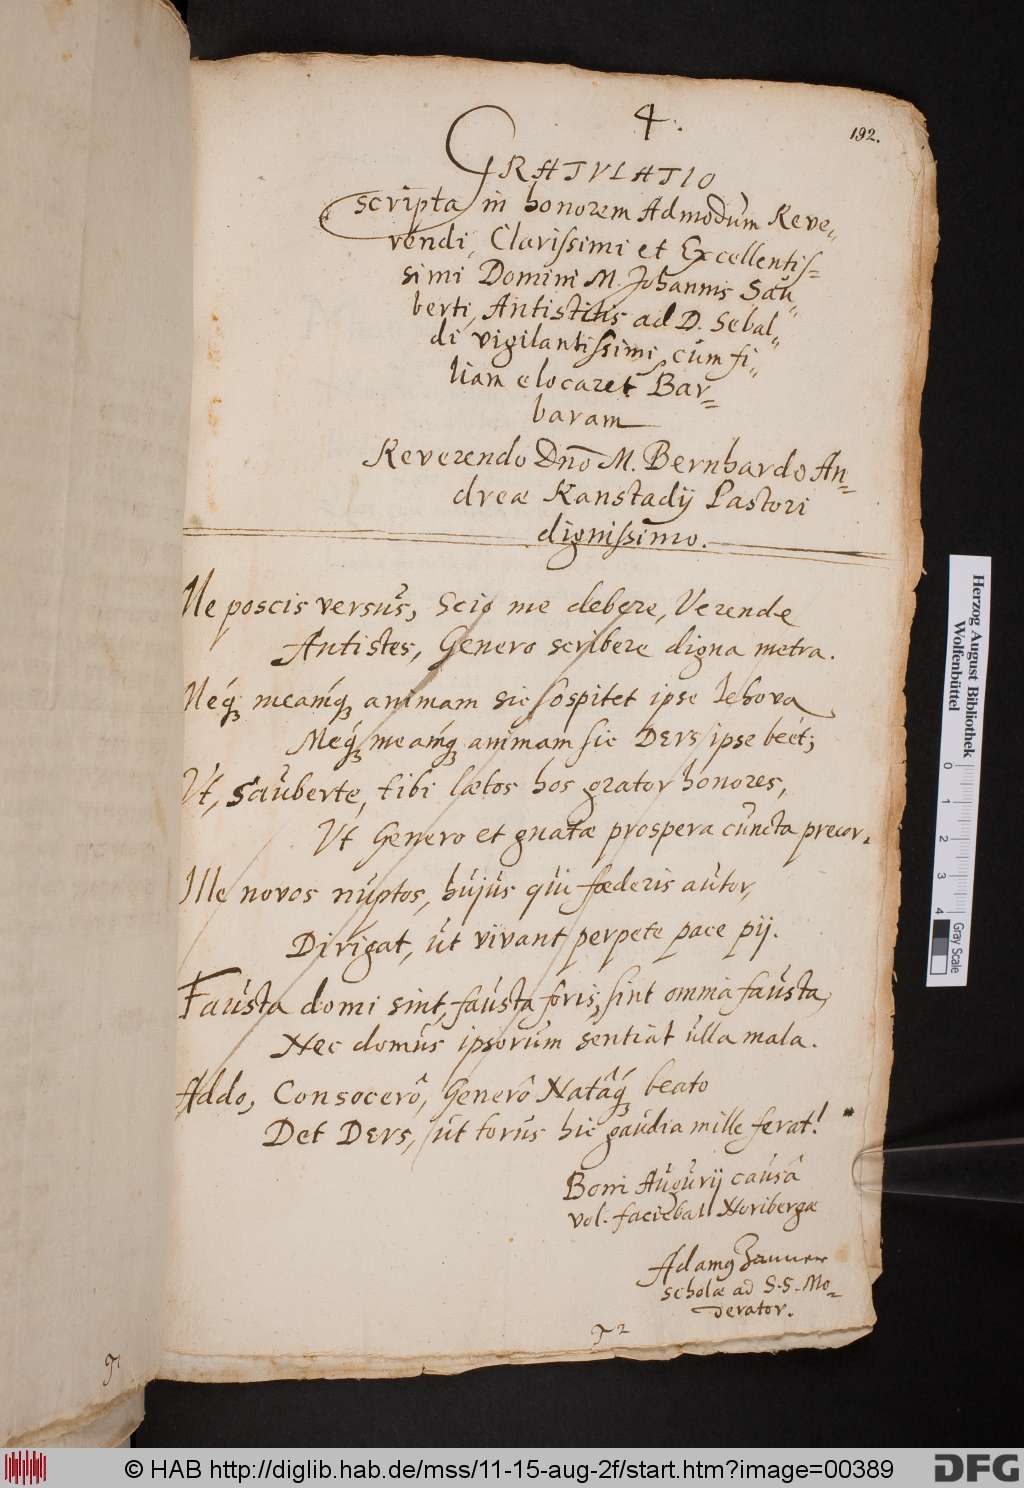 4.
192.
GRATVLATIO
scripta in honorem Admodum Reve-
rendi, Clarissimi et Excellentis-
simi Domini M. Johannis Sau-
berti, Antistitis ad D. Sebal-
di vigilantissimi, cum fi-
liam elocaret Bar-
baram
Reverendo Dnō M. Bernhardo An-
dreæ Kanstadij Pastori
dignissimo.
Ne poscis versus, Scio me debere, Verende
Antistes, Genero scribere digna metra.
Meq́ʒ meamq́ʒ animam sic sospitet ipse Iehova
Meq́ʒ meamq́ʒ animam sic DEVS ipse beét;
Vt, Sauberte, tibi lætos hos grator honores,
Vt Genero et gnatæ prospera cuncta precor.
Ille novos nuptos, hujus qui fœderis autor,
Dirigat, ut vivant perpete pace pij.
Fausta domi sint, fausta foris, sint omnia fausta,
Nec domus ipsorum sentiat ulla mala.
Addo, Consocerô, Generô Natâq́ʒ beato
Det DEVS, ut torus hic gaudia mille ferat!
Boni Augurij causâ
vol. faciebat Noribergæ
Adamꝰ Zanner
scholæ ad S.S. Mo-
derator.
T2
T
Herzog August Bibliothek
Wolfenbüttel
0 1 2 3 4
Gray Scale
© HAB http://diglib.hab.de/mss/11-15-aug-2f/start.htm?image=00389
DFG